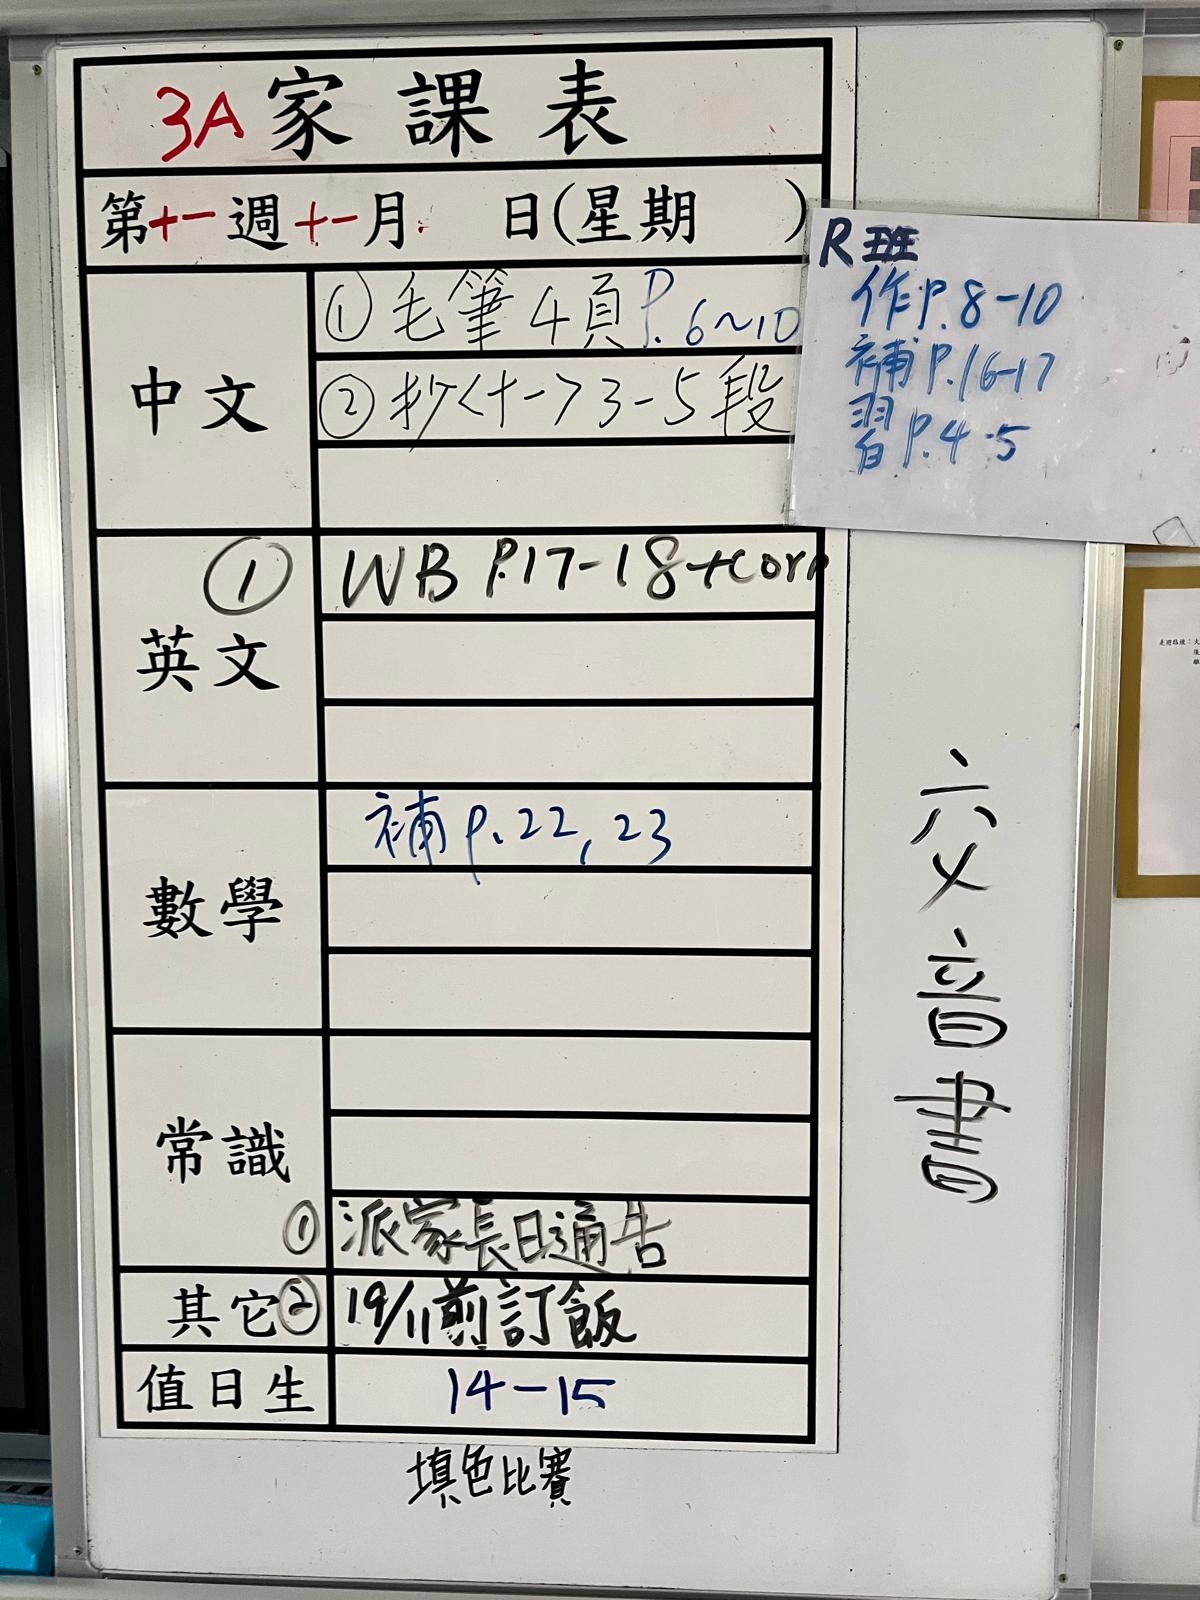 3A家課表
第十一週十一月 日(星期 )
中文
①毛筆4頁P.6~10
②抄<十一>3-5段
R班
作P.8-10
補P.16-17
習P.4-5
英文
① WB P.17-18+corr
數學
補P.22,23
常識
①派家長日通告
其它
②19/11前訂飯
值日生
14-15
填色比賽
六乂音書